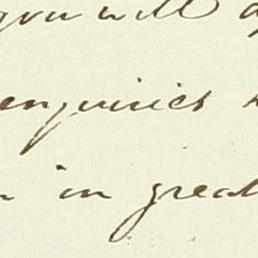 you will
enquiries
in great